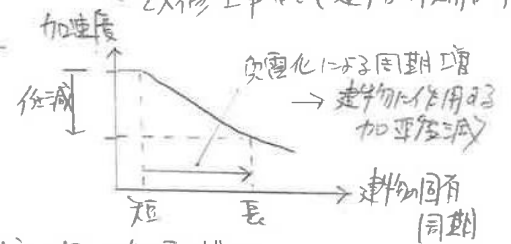 加速度
低減
免震化による周期増
→ 建物に作用する
加速度減
建物の固有
周期
短
長